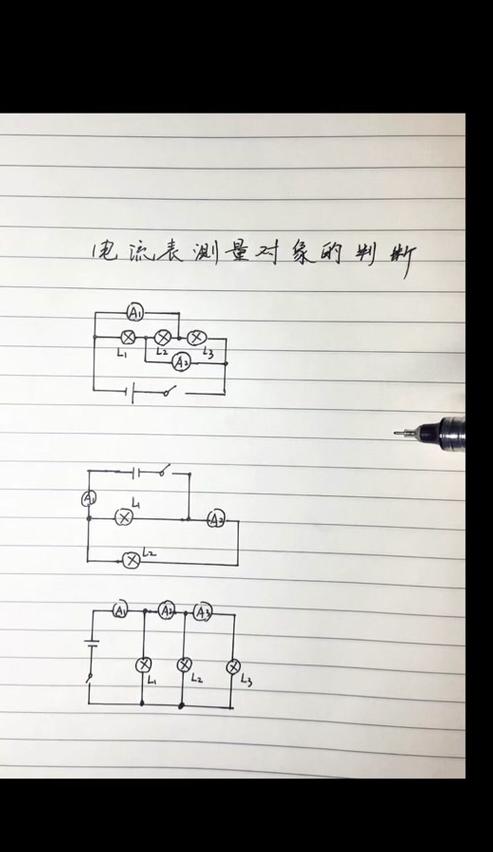 电流表测量对象的判断
A₁
L₁ L₂ L₃
A₂
A₁
L₁
A₂
L₂
A₁ A₂ A₃
L₁ L₂ L₃